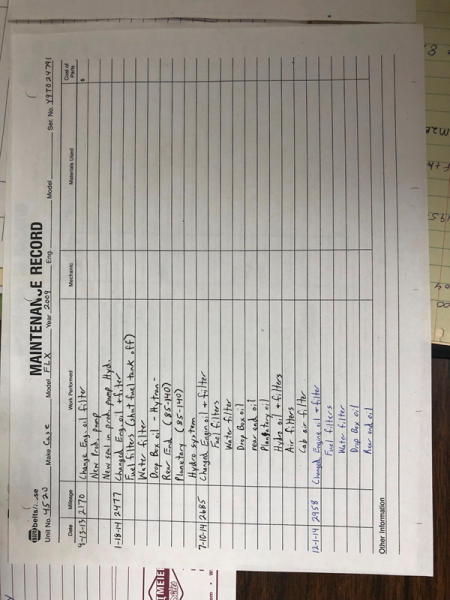 MAINTENANCE RECORD
Unit No. 4520 Make Case Model FLX Year 2009 Eng. Model Ser. No. Y9T024791
Date Mileage Work Performed Mechanic Materials Used Cost of Parts
4-13-13 2170 Change Eng. oil filter $
New Prod. pump
New seal in prod. pump Hyd.
1-18-14 2477 Changed Eng. oil + filter
Fuel filters (shut fuel tank off)
Water filter
Drop Box oil - Hytran -
Rear End (85-140)
Planetary (85-140)
Hydro system
7-10-14 2685 Changed Engin oil + filter
Fuel filters
Water filter
Drop Box oil
rear end oil
Planatary oil
Hydro oil + filters
Air filters
Cab air filter
12-1-14 2958 Changed Engine oil + filter
Fuel filters
Water filter
Drop Box oil
Rear end oil
Other Information
MEIER